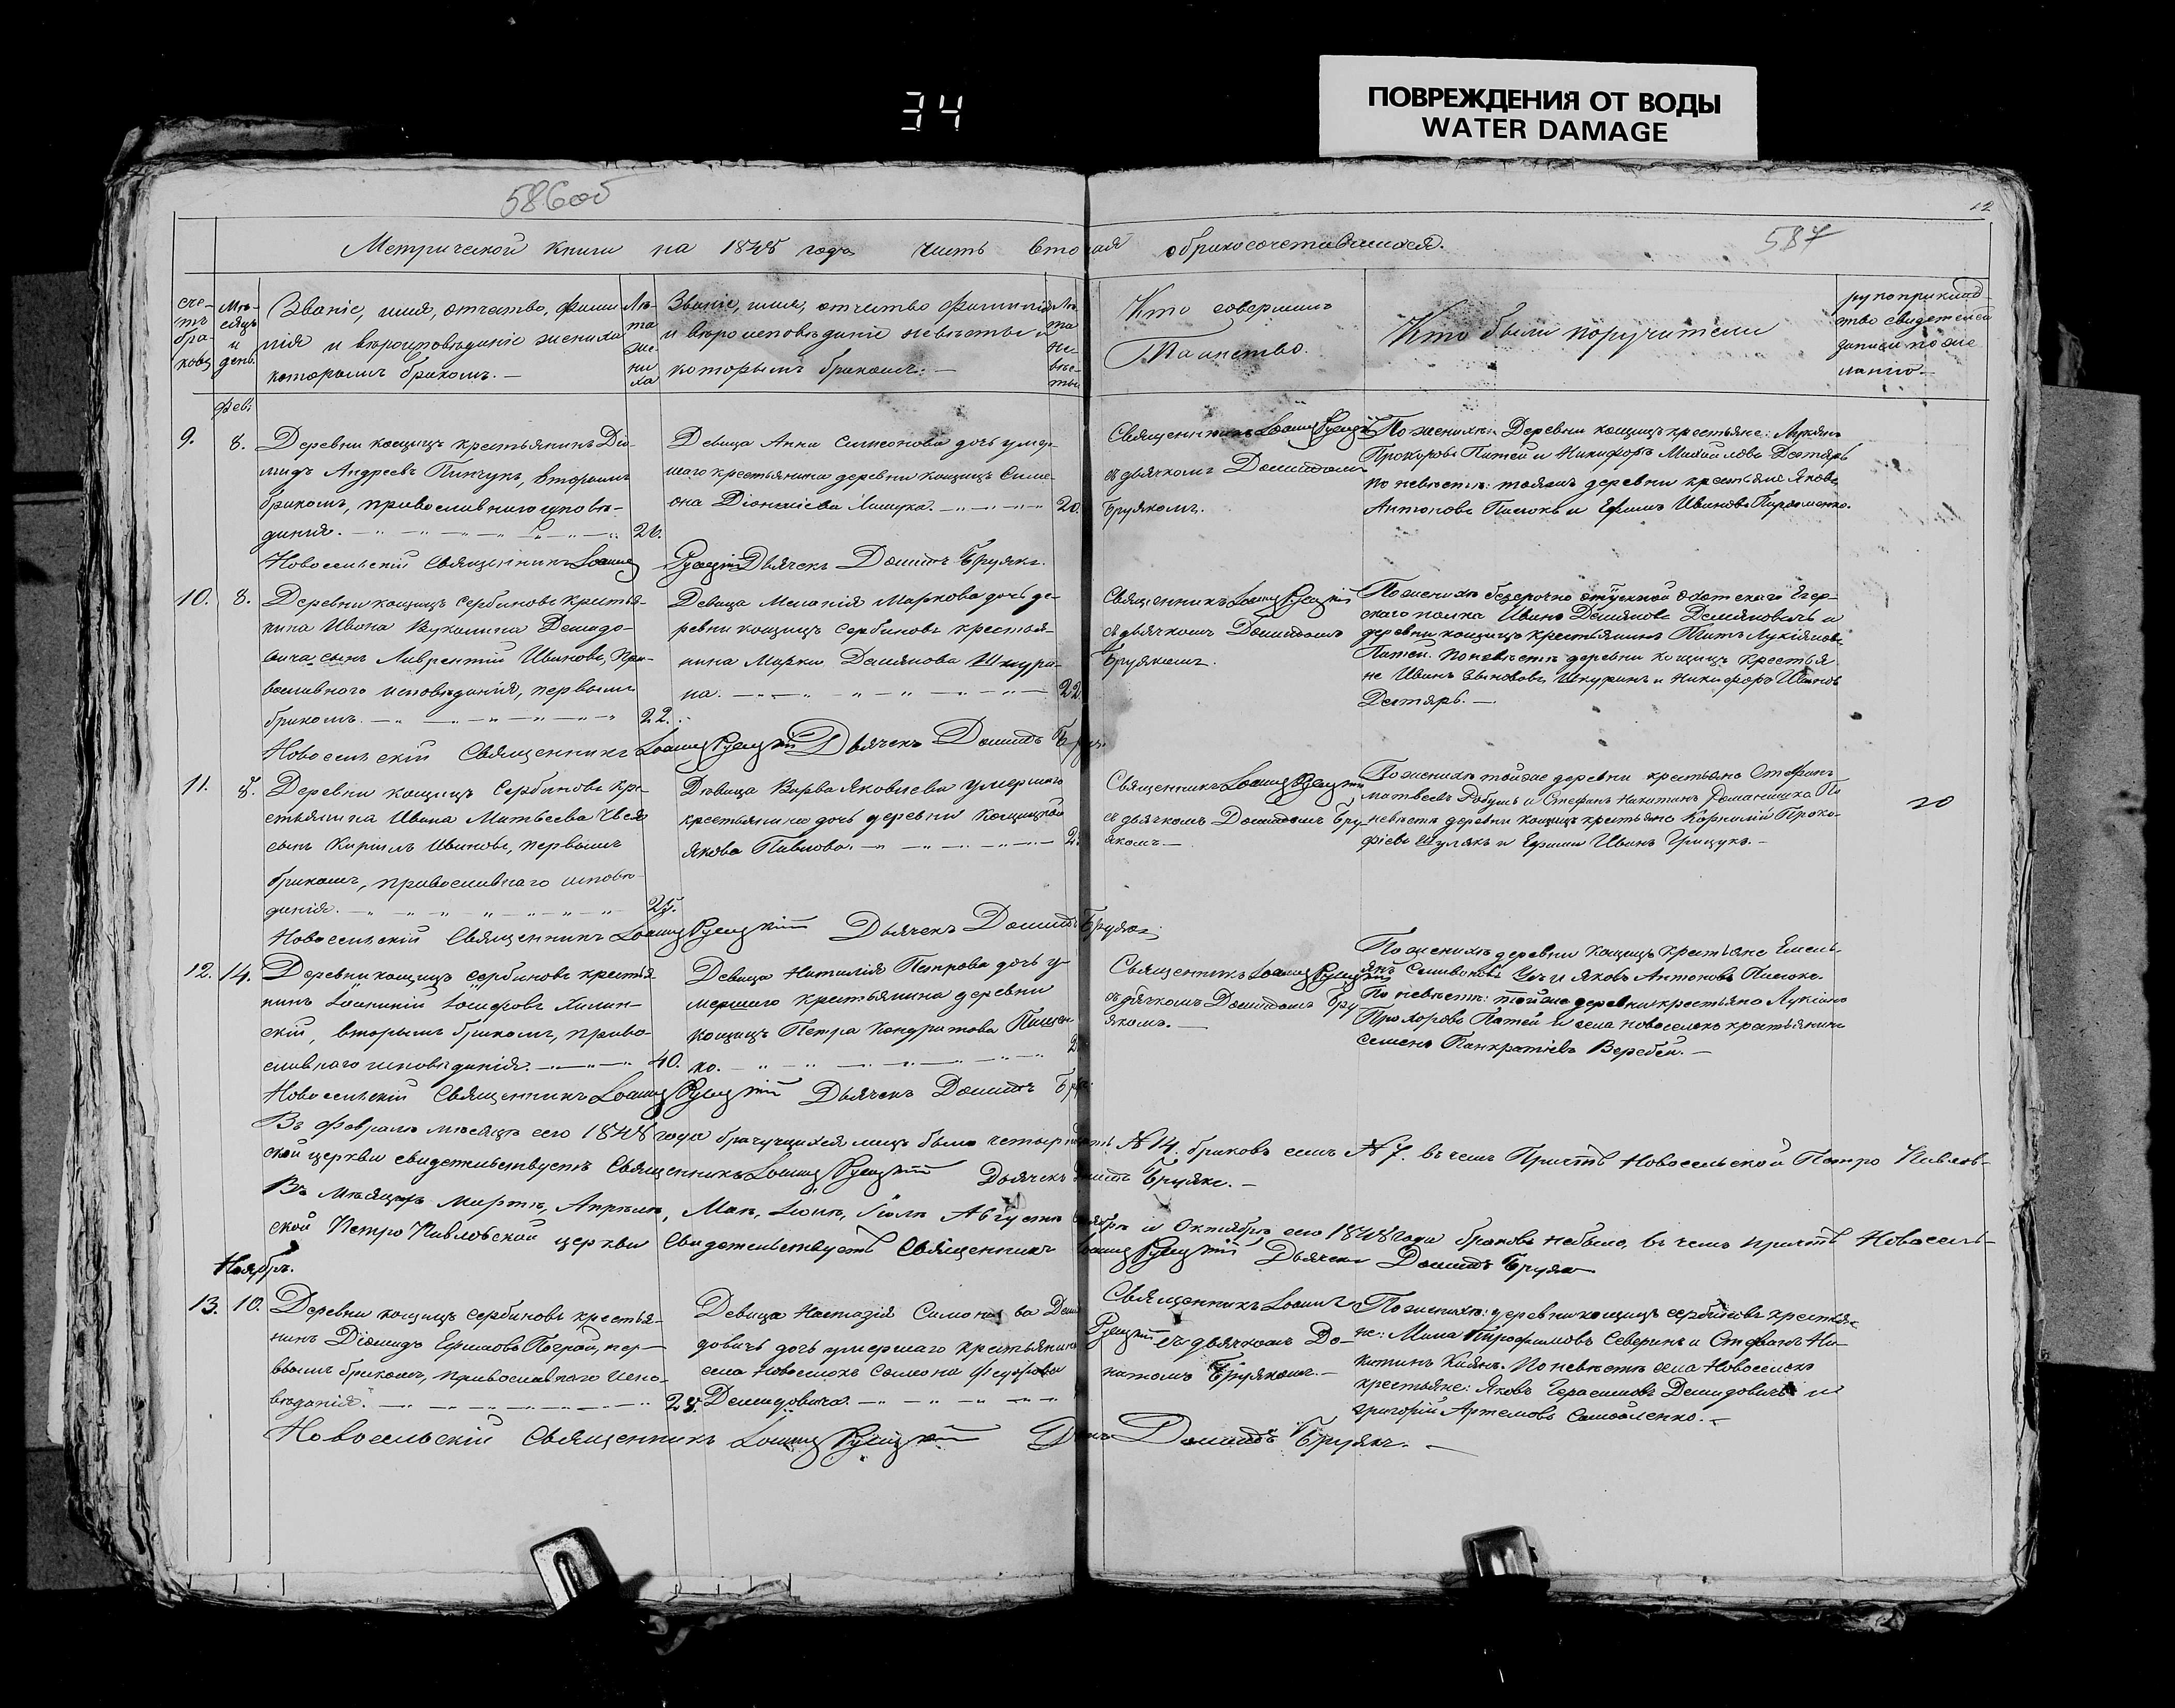 34
ПОВРЕЖДЕНИЯ ОТ ВОДЫ
WATER DAMAGE
586об
12
587
Метрической книги на 1848 годъ часть вторая о бракосочетавшихся.
сче-
тъ
бра-
ковъ
Мѣ-
сяцъ
и
день.
Званіе, имя, отчество, фами
лія и вѣроисповѣданіе жениха
которымъ бракомъ. —
Лѣ-
та
же-
ни
ха
Званіе, имя, отчество фамилія
и вѣроисповѣданіе невѣсты и
которымъ бракомъ. —
Лѣ
та
не-
вѣс-
ты
Кто совершилъ
Таинство.
Кто были поручители
рукоприклад-
ство свидетелей
записи по же
ланію. —
Фев:
9. 8.
Деревни кощицъ крестьянинъ Діо-
мидъ Андреевъ Пинчукъ, вторымъ
бракомъ, православнаго исповѣ-
данія. 26.
Девица Анна Симеонова дочь умер-
шаго крестьянина деревни кощицъ Симе-
она Діонисіева 20.
Священникъ Іоаннъ Русецкій
съ дьячкомъ Домидомъ
Бруякомъ.
По женихѣ: Деревни кощицъ крестьяне: Лукіянъ
Прохоровъ Патей и Никифоръ Михайловъ Дегтярь
по невѣстѣ: тояжъ деревни крестьяне Яковъ
Антоновъ и Ефимъ Ивановъ
Новосельскій Священникъ Іоаннъ Русецкій Дьячекъ Домидъ Бруякъ.
10. 8.
Деревни кощицъ Сербиновъ крестья-
нина Ивана Вукалина Демидо-
вича сынъ Лаврентій Ивановъ, Пра-
вославнаго исповѣданія, первымъ
бракомъ. 22.
Девица Меланія Маркова дочь де-
ревни кощицъ Сербиновъ крестья-
нина Марка Демянова Шкура-
на. 22
Священникъ Іоаннъ Русецкій
съ дьячкомъ Домидомъ
Бруякомъ.
По женихѣ безсрочно отпускной Охотскаго Егер-
скаго полка Иванъ Демяновъ Демяновичъ и
деревни кощицъ крестьянинъ Титъ Лукіяновъ
Патей. По невѣстѣ деревни кощицъ крестья
не Иванъ Шкуринъ и Никифоръ Ивановъ
Дегтярь. —
Новосельскій Священникъ Іоаннъ Русецкій Дьячекъ Домидъ
11. 8.
Деревни кощицъ Сербиновъ кре-
стьянина Ивана Матвеева
сынъ Кирилъ Ивановъ, первымъ
бракомъ, православнаго исповѣ-
данія. 25.
Дѣвица Варвара Яковлева умершаго
крестьянина дочь деревни Кощицъ
Якова Павлова.
Священникъ Іоаннъ Русецкій
съ дьячкомъ Домидомъ Бру-
якомъ. —
По женихѣ тойже деревни крестьяне Стефанъ
Матвеевъ и Стефанъ Никитинъ Романишка По
невѣстѣ деревни кощицъ крестьяне Корнилій Проко-
фіевъ Шулякъ и Ефимъ Иванъ Грищукъ. —
20
Новосельскій Священникъ Іоаннъ Русецкій Дьячекъ Домидъ Бруякъ
12. 14.
Деревни кощицъ сербиновъ крестья
нинъ Іоанникій Іосифовъ Хилин-
скій, вторымъ бракомъ, право-
славнаго исповѣданія. 40.
Девица Наталія Петрова дочь у-
мершаго крестьянина деревни
кощицъ Петра Кондратова Пищен
ко.
Священникъ Іоаннъ Русецкій
съ дьячкомъ Домидомъ Бру
якомъ. —
По женихѣ деревни кощицъ крестьяне Емель-
янъ Селивоновъ и Яковъ Антоновъ
По невѣстѣ: тойже деревни крестьяне Лукіянъ
Прохоровъ Патей и села новоселокъ крестьянинъ
Семенъ Панкратіевъ Веребей. —
Новосельскій Священникъ Іоаннъ Русецкій Дьячекъ Домидъ
Въ Февралѣ мѣсяцѣ сего 1848 года брачущихся лицъ было четырнадцать № 14. браковъ семь № 7. въ чемъ Причтъ Новосельской Петро Павлов-
ской церкви свидетельствуетъ Священникъ Іоаннъ Русецкій Дьячекъ Домидъ Бруякъ. —
Въ мѣсяцахъ Мартѣ, Апрѣлѣ, Маѣ, Іюнѣ, Іюлѣ Августѣ Сентябрѣ и Октябрѣ сего 1848 года браковъ небыло, въ чемъ причтъ Новосель-
ской Петро Павловской церкви Свидетельствуетъ Священникъ Іоаннъ Русецкій Дьячекъ Домидъ Бруякъ
Ноябрь.
13. 10.
Деревни кощицъ сербиновъ крестья-
нинъ Діомидъ Ефимовъ пер-
вымъ бракомъ, православнаго испо-
вѣданія.
Девица Настазія Симонова Деми
довичъ дочь умершаго крестьянина
села Новоселокъ Самона Федорова
Демидовича.
Священникъ Іоаннъ
Русецкій съ дьячкомъ До-
натомъ Бруякомъ. —
По женихѣ: деревни кощицъ сербиновъ крестья
не: Мина Трофимовъ Северинъ и Стефанъ Ни-
китинъ Киянъ. По невѣстѣ села Новоселокъ
крестьяне: Яковъ Герасимовъ Демидовичъ и
Григорій Артемовъ Самойленко. —
Новосельскій Священникъ Іоаннъ Русецкій Домидъ Бруякъ. —